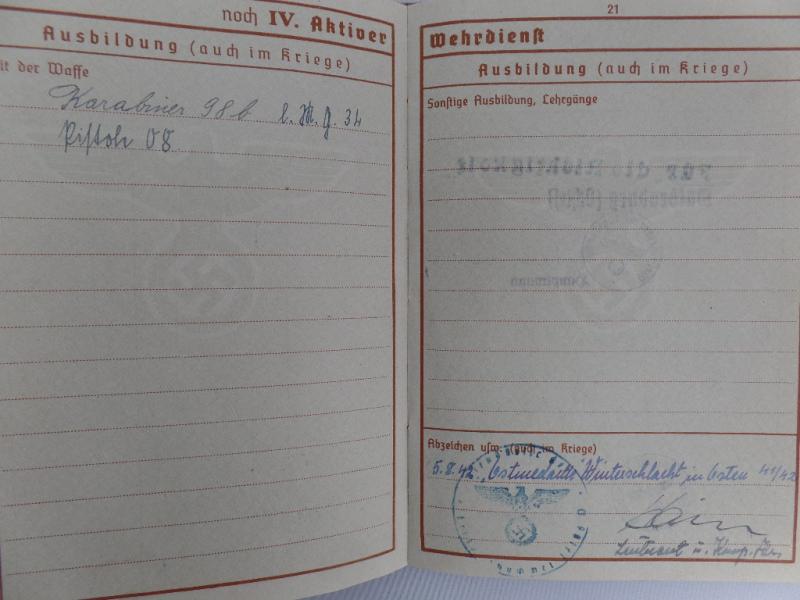 noch IV. Aktiver
Ausbildung (auch im Kriege)
it der Waffe
Karabiner 98b l. M. g. 34
Pistole 08
21
Wehrdienst
Ausbildung (auch im Kriege)
Sonstige Ausbildung, Lehrgänge
Für die Richtigkeit
Hauptmann
Abzeichen usw. (auch im Kriege)
5.8.42 "Ostmedaille" Winterschlacht in Osten 41/42
Leutnant u. Komp.